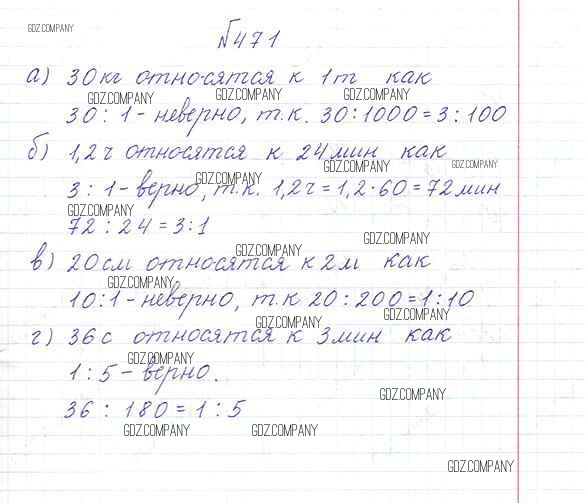 GDZ.COMPANY
№471
а) 30кг относятся к 1т как
GDZ.COMPANY GDZ.COMPANY GDZ.COMPANY
30:1 - неверно, т.к. 30:1000=3:100
б) 1,2ч относятся к 24мин как
GDZ.COMPANY GDZ.COMPANY GDZ.COMPANY
3:1 - верно, т.к. 1,2ч=1,2·60=72мин
GDZ.COMPANY
72:24=3:1
GDZ.COMPANY GDZ.COMPANY
в) 20см относятся к 2м как
GDZ.COMPANY
10:1 - неверно, т.к 20:200=1:10
GDZ.COMPANY GDZ.COMPANY
г) 36с относятся к 3мин как
GDZ.COMPANY
1:5 - верно.
GDZ.COMPANY
36:180=1:5
GDZ.COMPANY GDZ.COMPANY
GDZ.COMPANY